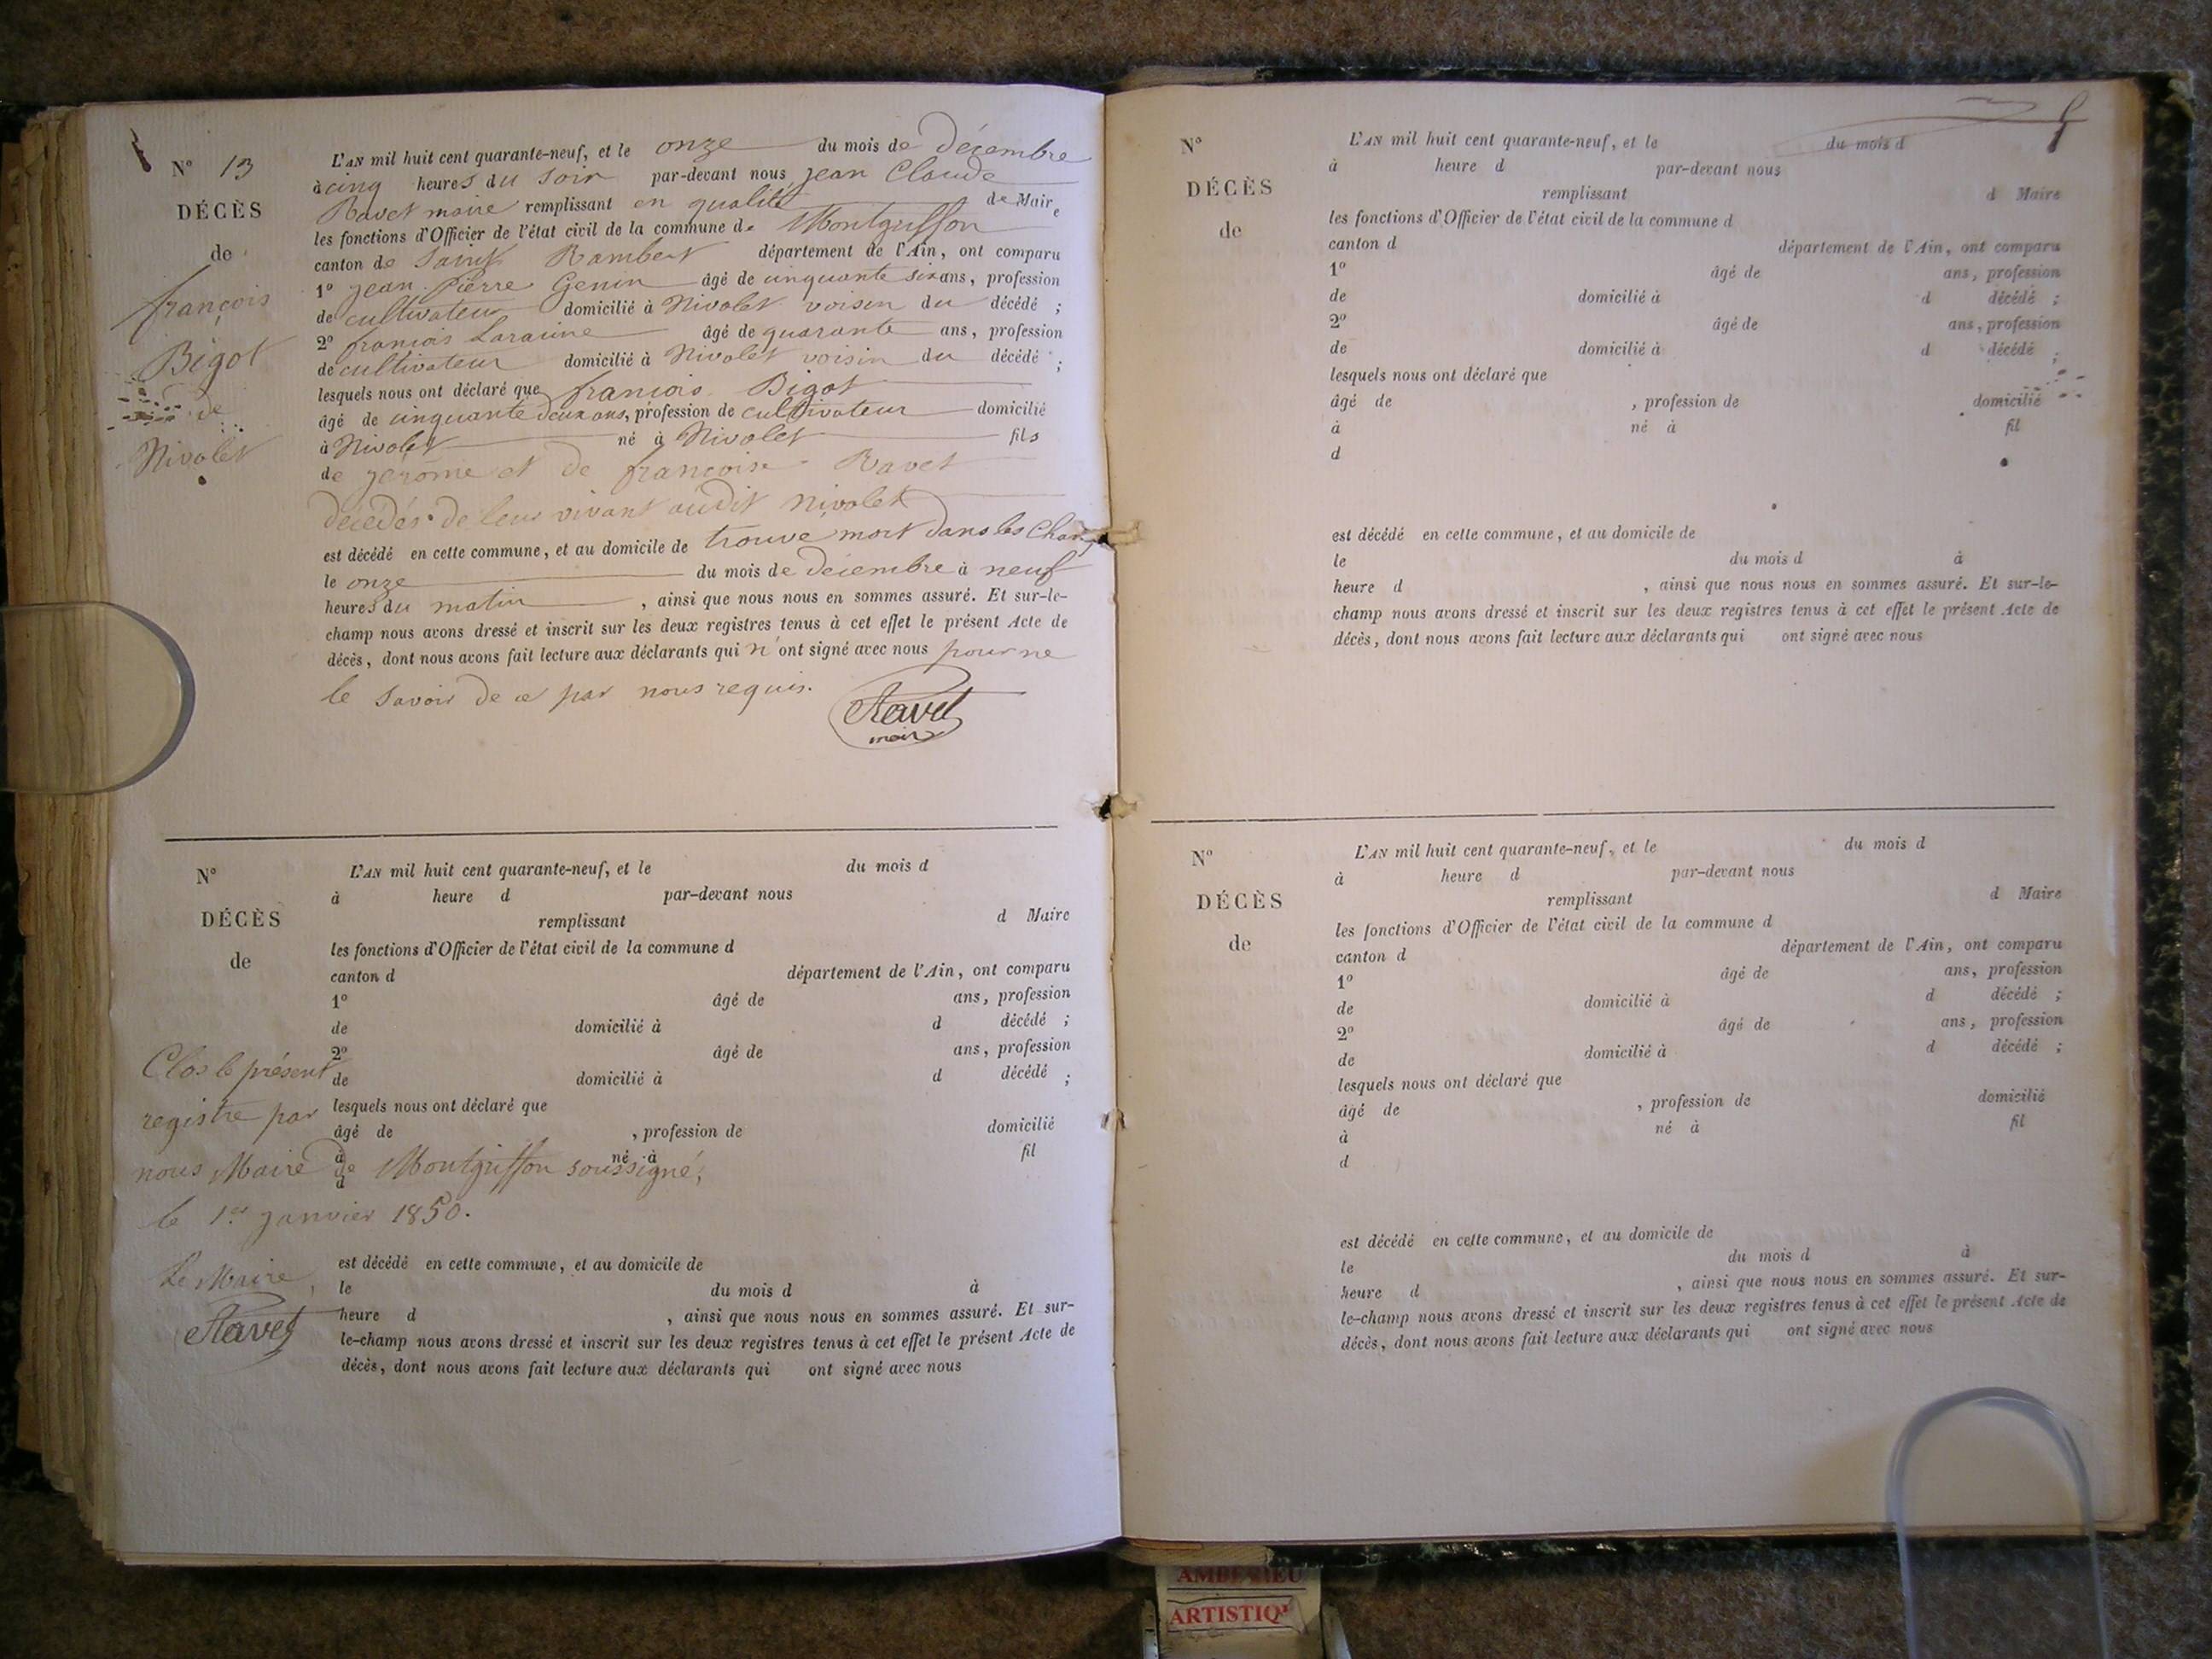 N° 13
DÉCÈS
de
françois
Bigot
de
Nivolet
L'AN mil huit cent quarante-neuf, et le onze du mois de décembre
à cinq heures du soir par-devant nous jean Claude
Ravet maire remplissant en qualité de Maire
les fonctions d'Officier de l'état civil de la commune de Montgriffon
canton de Saint Rambert département de l'Ain, ont comparu
1° jean Pierre Genin âgé de cinquante six ans, profession
de cultivateur domicilié à Nivolet voisin du décédé ;
2° francois Laraine âgé de quarante ans, profession
de cultivateur domicilié à Nivolet voisin du décédé ;
lesquels nous ont déclaré que francois Bigot
âgé de cinquante deux ans, profession de cultivateur domicilié
à Nivolet né à Nivolet fils
de jerome et de françoise Ravet
décédés de leur vivant audit Nivolet
est décédé en cette commune, et au domicile de trouvé mort dans les
le onze du mois de décembre à neuf
heures du matin , ainsi que nous nous en sommes assuré. Et sur-le-
champ nous avons dressé et inscrit sur les deux registres tenus à cet effet le présent Acte de
décès, dont nous avons fait lecture aux déclarants qui n'ont signé avec nous pour ne
le savoir de ce par nous requis.
Ravet
maire
N°
DÉCÈS
de
L'AN mil huit cent quarante-neuf, et le du mois d
à heure d par-devant nous
remplissant d Maire
les fonctions d'Officier de l'état civil de la commune d
canton d département de l'Ain, ont comparu
1° âgé de ans, profession
de domicilié à d décédé ;
2° âgé de ans, profession
de domicilié à d décédé ;
lesquels nous ont déclaré que
âgé de , profession de domicilié
à né à fil
d
Clos le présent
registre par
nous Maire de Montgriffon soussigné,
le 1er janvier 1850.
Le Maire
Ravet
est décédé en cette commune, et au domicile de
le du mois d à
heure d , ainsi que nous nous en sommes assuré. Et sur-
le-champ nous avons dressé et inscrit sur les deux registres tenus à cet effet le présent Acte de
décès, dont nous avons fait lecture aux déclarants qui ont signé avec nous
N°
DÉCÈS
de
L'AN mil huit cent quarante-neuf, et le du mois d
à heure d par-devant nous
remplissant d Maire
les fonctions d'Officier de l'état civil de la commune d
canton d département de l'Ain, ont comparu
1° âgé de ans, profession
de domicilié à d décédé ;
2° âgé de ans, profession
de domicilié à d décédé ;
lesquels nous ont déclaré que
âgé de , profession de domicilié
à né à fil
d
est décédé en cette commune, et au domicile de
le du mois d à
heure d , ainsi que nous nous en sommes assuré. Et sur-le-
champ nous avons dressé et inscrit sur les deux registres tenus à cet effet le présent Acte de
décès, dont nous avons fait lecture aux déclarants qui ont signé avec nous
N°
DÉCÈS
de
L'AN mil huit cent quarante-neuf, et le du mois d
à heure d par-devant nous
remplissant d Maire
les fonctions d'Officier de l'état civil de la commune d
canton d département de l'Ain, ont comparu
1° âgé de ans, profession
de domicilié à d décédé ;
2° âgé de ans, profession
de domicilié à d décédé ;
lesquels nous ont déclaré que
âgé de , profession de domicilié
à né à fil
d
est décédé en cette commune, et au domicile de
le du mois d à
heure d , ainsi que nous nous en sommes assuré. Et sur-
le-champ nous avons dressé et inscrit sur les deux registres tenus à cet effet le présent Acte de
décès, dont nous avons fait lecture aux déclarants qui ont signé avec nous
ARTISTIQ